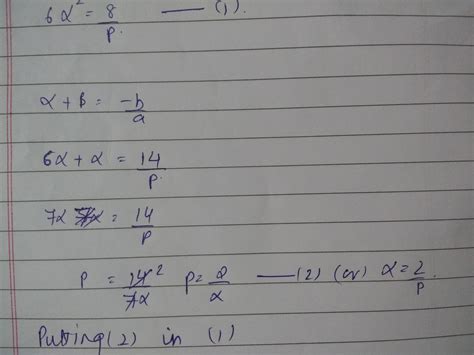 6α² = 8/p —— (1).
α + β = -b/a
6α + α = 14/p.
7α 7α = 14/p
p = 14 2/7α p = 2/α —— (2) (or) α = 2/p
Putting (2) in (1)